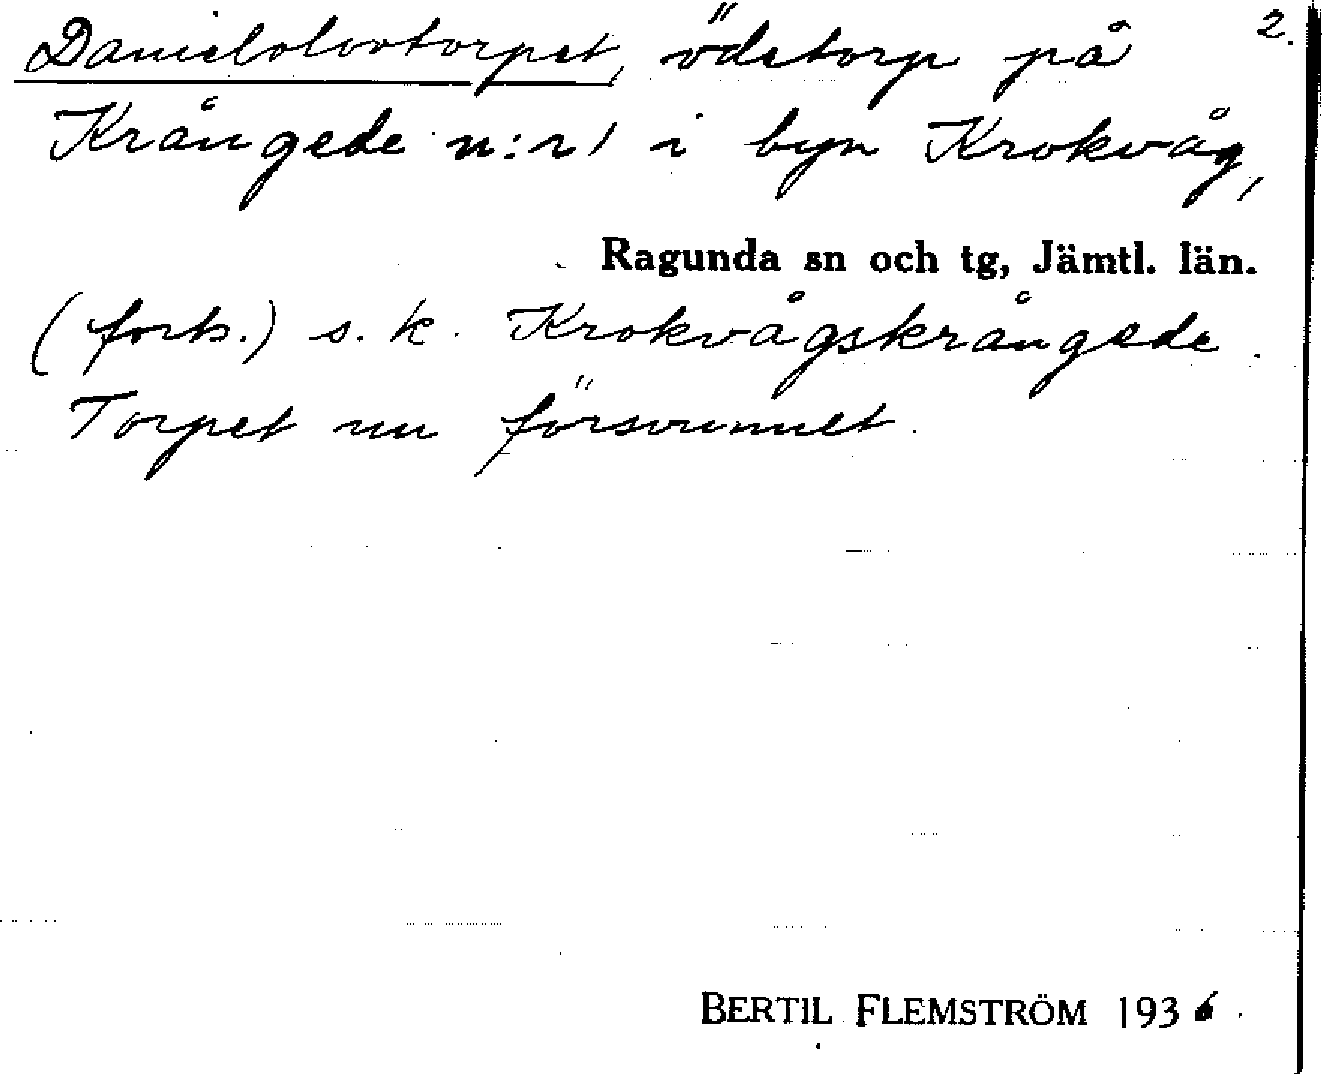 Danielolovtorpet, ödetorp på 2.
Krångede n:r 1 i byn Krokvåg,
Ragunda sn och tg, Jämtl. län.
(forts.) s.k. Krokvågskrångede.
Torpet nu försvunnet.
BERTIL FLEMSTRÖM 1936.